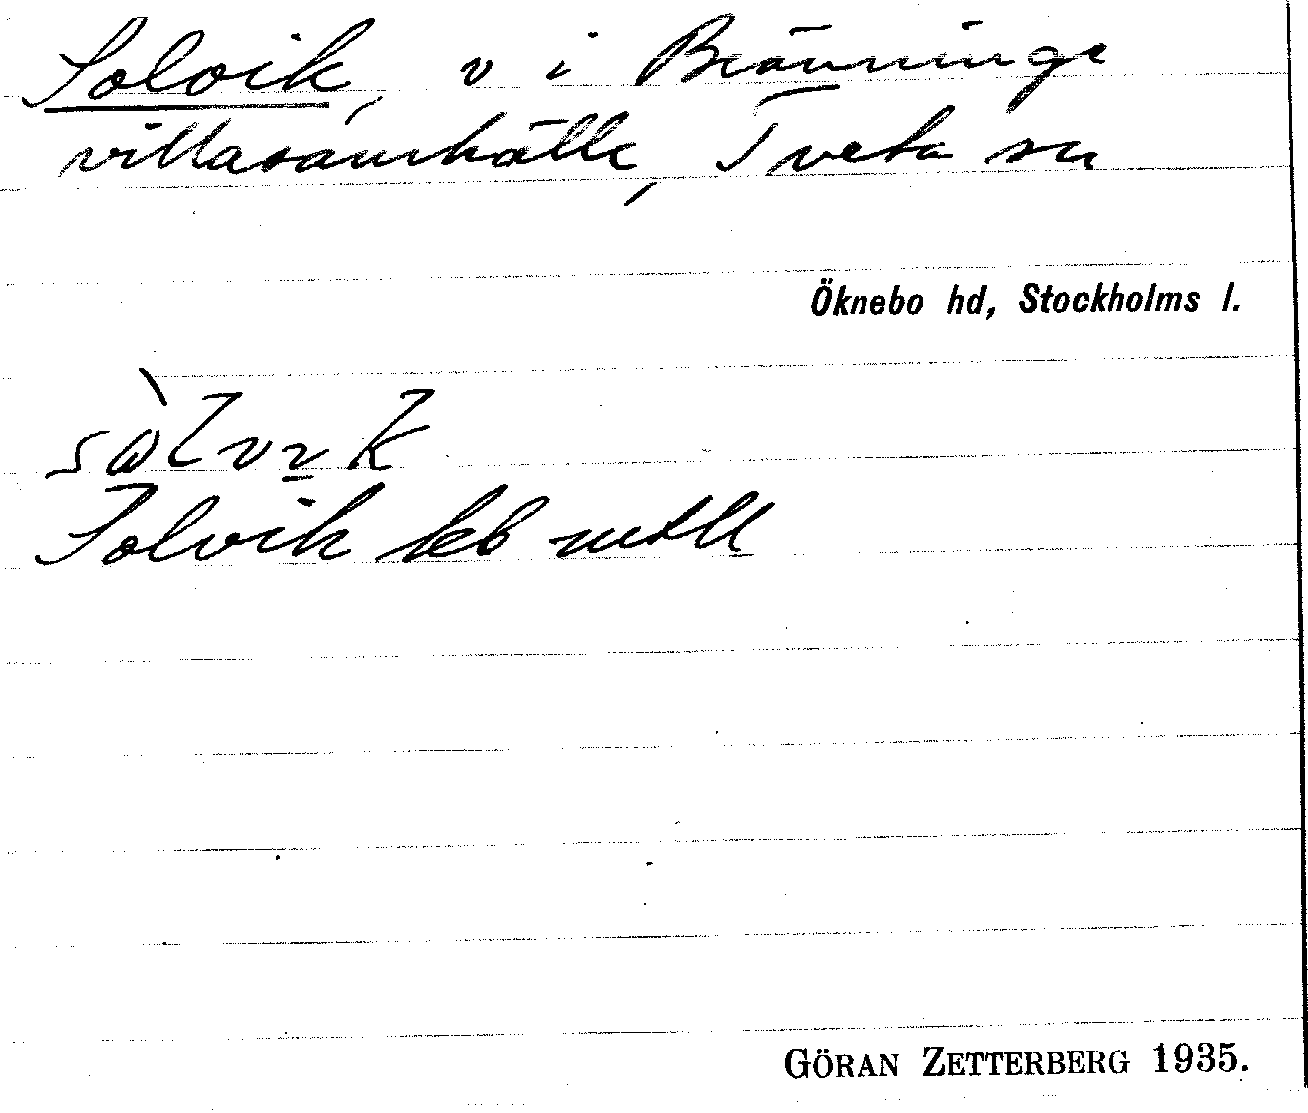 Solvik, v i Bränninge
villasamhälle, Tveta sn
Öknebo hd, Stockholms l.
sòlvik
Solvik leb mtll
GÖRAN ZETTERBERG 1935.